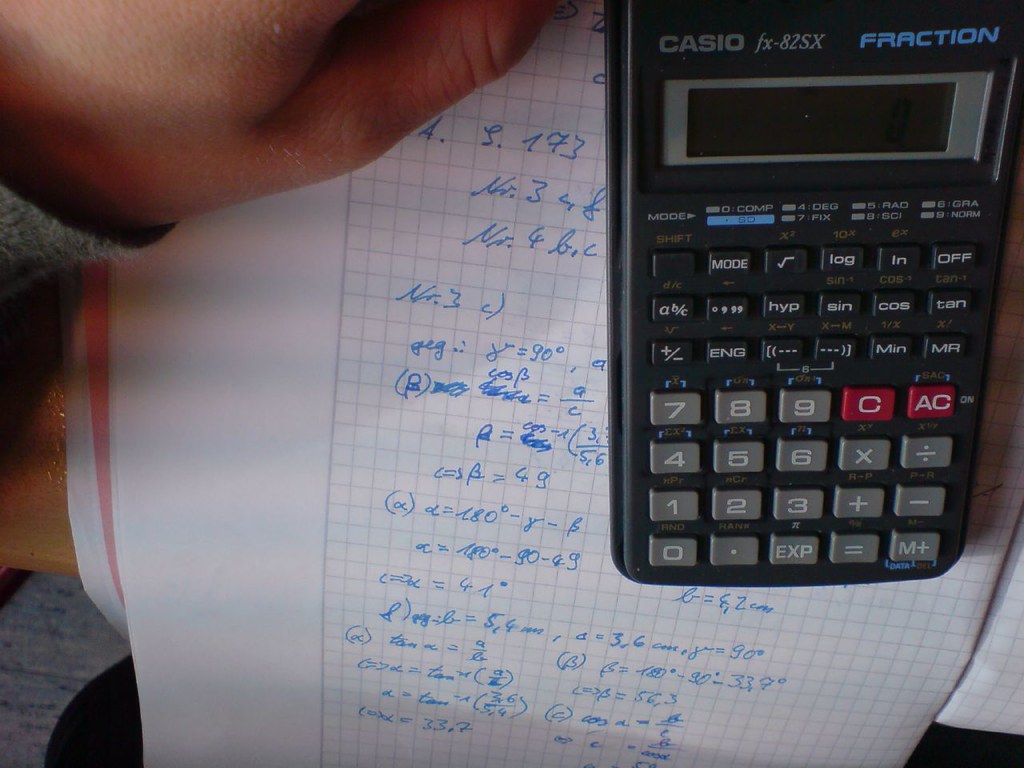 S. 173
Nr. 3
Nr. 4 b, c
Nr. 3 c)
geg.: γ = 90°, a
cos β
(β) = a/c
β = cos-1(3,
5,6
<=> β = 49
(α) α = 180° - γ - β
α = 180° - 90 - 49
<=> α = 41°
b = 4,2 cm
b = 5,4 cm, a = 3,6 cm, γ = 90°
(α) tan α = a/b
(β) β = 180° - 90° - 33,7°
<=> α = tan-1(a/b)
<=> β = 56,3
α = tan-1(3,6/5,4)
(c) cos α = b/c
<=> α = 33,7
CASIO fx-82SX FRACTION
0
MODE▶ 0:COMP 4:DEG 5:RAD 6:GRA
· SD 7:FIX 8:SCI 9:NORM
SHIFT x² 10ˣ eˣ
MODE √ log ln OFF
d/c ← sin⁻¹ cos⁻¹ tan⁻¹
a b/c ° ' " hyp sin cos tan
³√ ← X↔Y X↔M 1/x x!
+/− ENG [(--- ---)] Min MR
6
SAC
7 8 9 C AC ON
4 5 6 × ÷
nPr nCr R→P P→R
1 2 3 + −
RND RAN# π % M−
0 · EXP = M+
DATA DEL